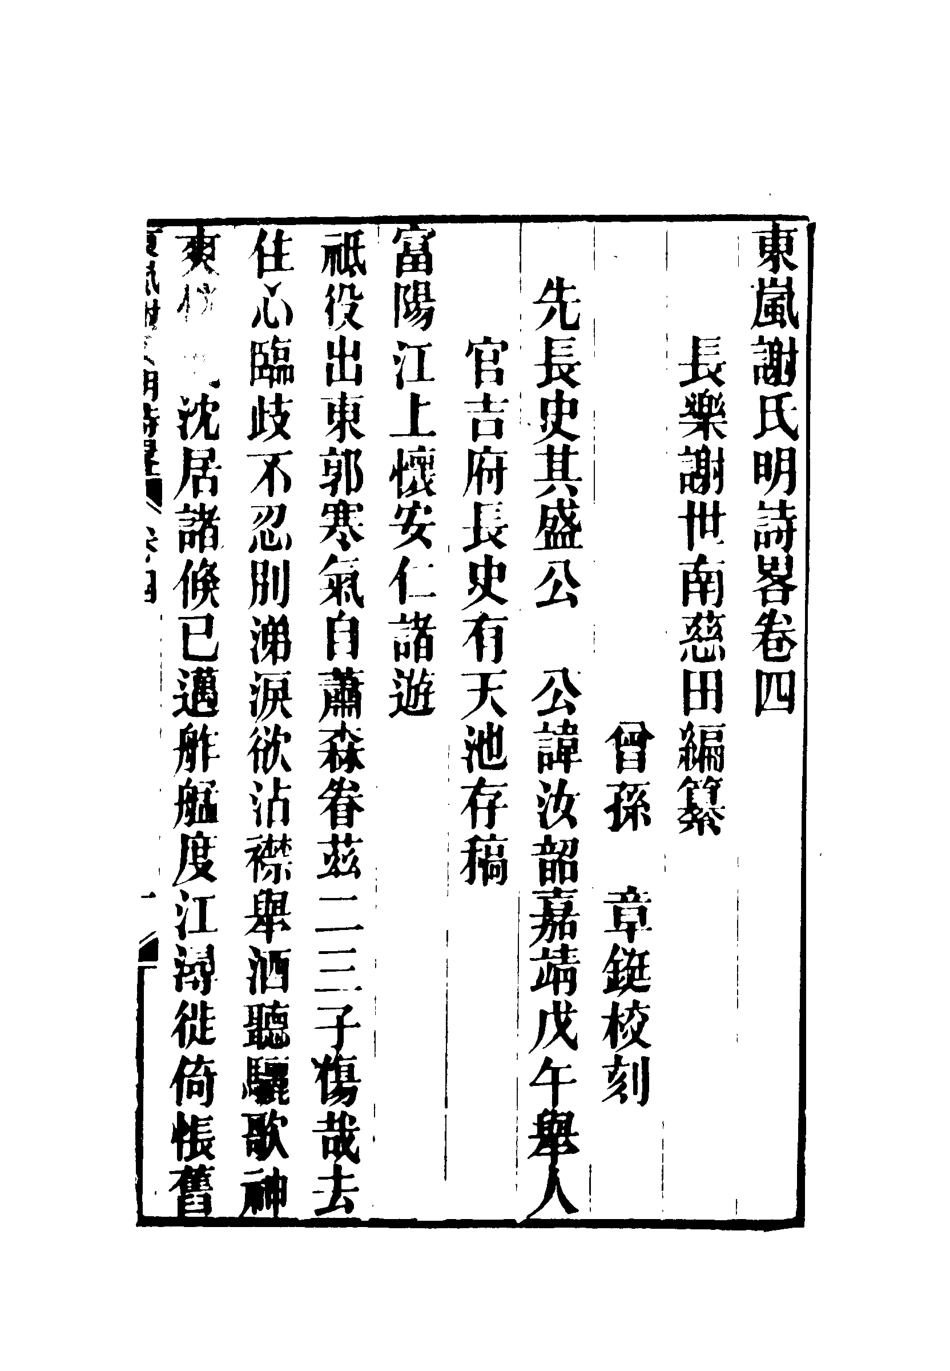 東嵐謝氏明詩畧卷四
長樂謝世南慈田編纂
曾孫 章鋌校刻
先長史其盛公 公諱汝韶嘉靖戊午舉人
官吉府長史有天池存稿
富陽江上懷安仁諸遊
祗役出東郭寒氣自蕭森眷茲二三子傷哉去
住心臨歧不忍別涕淚欲沾襟舉酒聽驪歌神
爽 沈居諸倏已邁舴艋度江潯徙倚悵舊
東嵐謝氏明詩畧 卷四 一